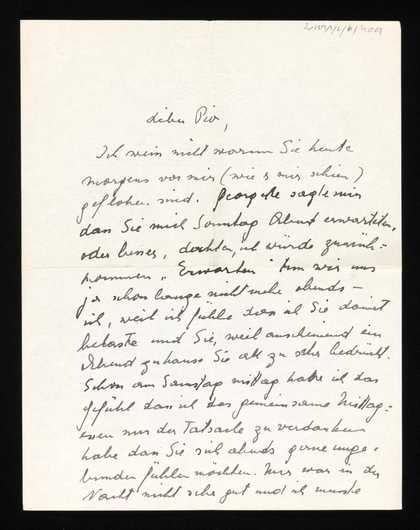 Lieber Piv,
Ich weiss nicht warum Sie heute
morgens vor mir (wie es mir schien)
geflohen sind. Georgette sagte mir
dass Sie mich Sonntag Abend erwarteten,
oder besser, dachten, ich würde zurück-
kommen. "Erwarten" tun wir uns
ja schon lange nicht mehr abends -
ich, weil ich fühle dass ich Sie damit
belaste und Sie, weil anscheinend ein
Abend zuhause Sie all zu sehr bedrückt.
Schon am Samstag mittag hatte ich das
Gefühl dass ich das gemeinsame Mittag-
essen nur der Tatsache zu verdanken
habe dass Sie sich abends gerne unge-
bunden fühlen möchten. Mir war in der
Nacht nicht sehr gut und ich musste